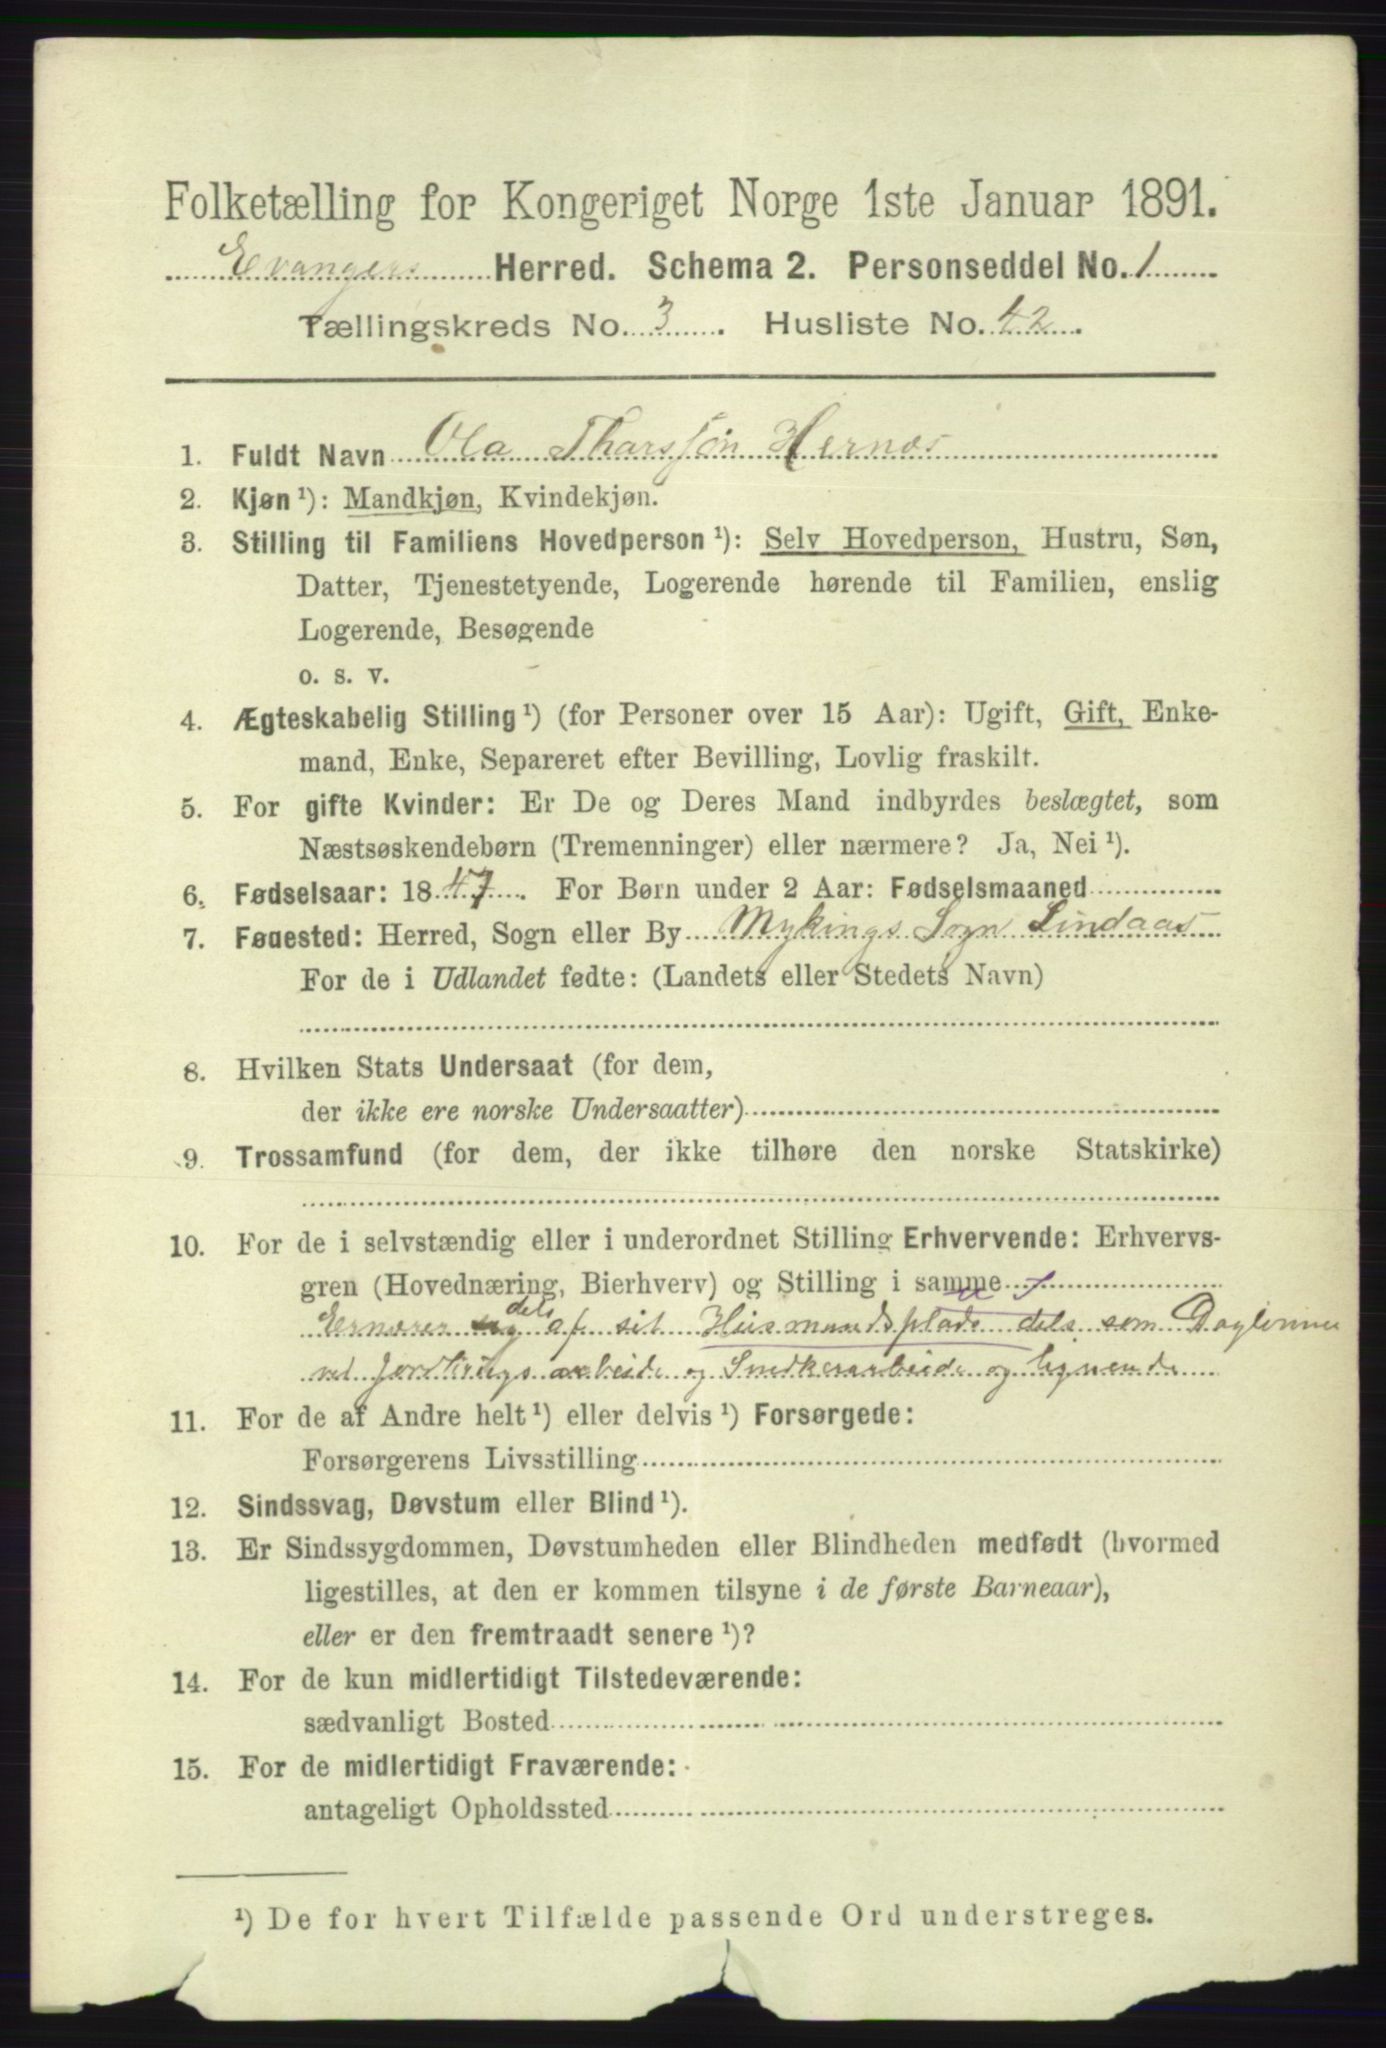 Folketælling for Kongeriget Norge 1ste Januar 1891.
Evangers Herred. Schema 2. Personseddel No. 1
Tællingskreds No. 3. Husliste No. 42.
1. Fuldt Navn Ola Tharssøn Hernæs
2. Kjøn ¹): Mandkjøn, Kvindekjøn.
3. Stilling til Familiens Hovedperson ¹): Selv Hovedperson, Hustru, Søn,
Datter, Tjenestetyende, Logerende hørende til Familien, enslig
Logerende, Besøgende
o. s. v.
4. Ægteskabelig Stilling ¹) (for Personer over 15 Aar): Ugift, Gift, Enke-
mand, Enke, Separeret efter Bevilling, Lovlig fraskilt.
5. For gifte Kvinder: Er De og Deres Mand indbyrdes beslægtet, som
Næstsøskendebørn (Tremenninger) eller nærmere? Ja, Nei ¹).
6. Fødselsaar: 1847. For Børn under 2 Aar: Fødselsmaaned
7. Fødested: Herred, Sogn eller By Mykings Sogn Lindaas
For de i Udlandet fødte: (Landets eller Stedets Navn)
8. Hvilken Stats Undersaat (for dem,
der ikke ere norske Undersaatter)
9. Trossamfund (for dem, der ikke tilhøre den norske Statskirke)
10. For de i selvstændig eller i underordnet Stilling Erhvervende: Erhvervs-
gren (Hovednæring, Bierhverv) og Stilling i samme
Ernærer sig dels af sit Husmandsplads dels som Daglønner
ved Jordbrugsarbeide og Snedkerarbeide og lignende
11. For de af Andre helt ¹) eller delvis ¹) Forsørgede:
Forsørgerens Livsstilling
12. Sindssvag, Døvstum eller Blind ¹).
13. Er Sindssygdommen, Døvstumheden eller Blindheden medfødt (hvormed
ligestilles, at den er kommen tilsyne i de første Barneaar),
eller er den fremtraadt senere ¹)?
14. For de kun midlertidigt Tilstedeværende:
sædvanligt Bosted
15. For de midlertidigt Fraværende:
antageligt Opholdssted
¹) De for hvert Tilfælde passende Ord understreges.